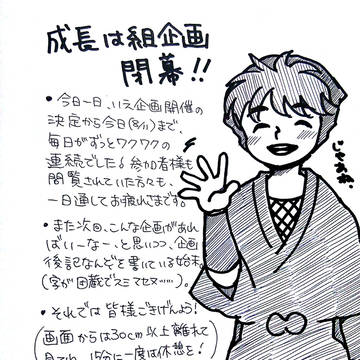 成長は組企画
閉幕!!
・今日一日、いえ企画開催の
決定から今日(8/11)まで、
毎日がずっとワクワクの
連続でした!参加者様も
閲覧されていた方々も、
一日通してお疲れさまです。
・また次回、こんな企画があれ
ばいーなー、と思いつつ、企画
後記なんぞを書いている始末。
(字が下手でスミマセヌ……)
・それでは皆様ごきげんよう!
(画面からは30cm以上離れて
見てね。15分に一度は休憩を!
じゃあね